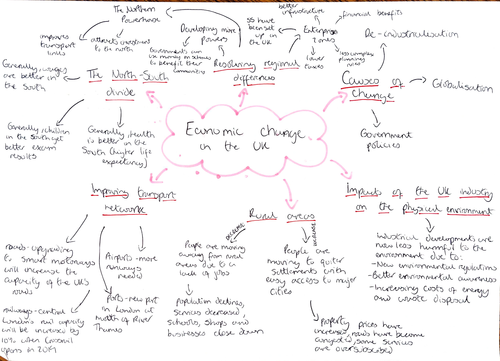 The Northern
Powerhouse
improves
transport
links
attracts investment
to the north
Generally, wages
are better in
the South
The North-South
divide
Generally children
in the South get
better exam
results
Generally, health
is better in the
South (higher life
expectancy)
Developing more
powers
Governments can
use money on schemes
to benefit their
communities
Resolving regional
differences
have
been set
up in
the UK
Enterprise
zones
better
infrastructure
financial benefits
lower
taxes
less complex
planning
rules
De-industrialisation
Causes of
change
Globalisation
Government
policies
Economic change
in the UK
Improving transport
network
roads-upgrading
to smart motorways
will increase the
capacity of the UK's
roads
railways-central
London's rail capacity
will be increased by
10% when Crossrail
opens in 2019
Airports-more
runways needed
Ports-new port
in London at
mouth of River
Thames
Rural areas
decline
People are moving
away from rural
areas due to a
lack of jobs
Population declines,
services decreased
Schools, shops and
businesses close down
People are
moving to quieter
settlements with
easy access to major
cities
Property prices have
increased, roads have become
congested, some services
are oversubscribed
Impacts of the UK industry
on the physical environment
Industrial developments are
now less harmful to the
environment due to:
-New environmental regulations
-Better environmental awareness
-Increasing costs of energy
and waste disposal